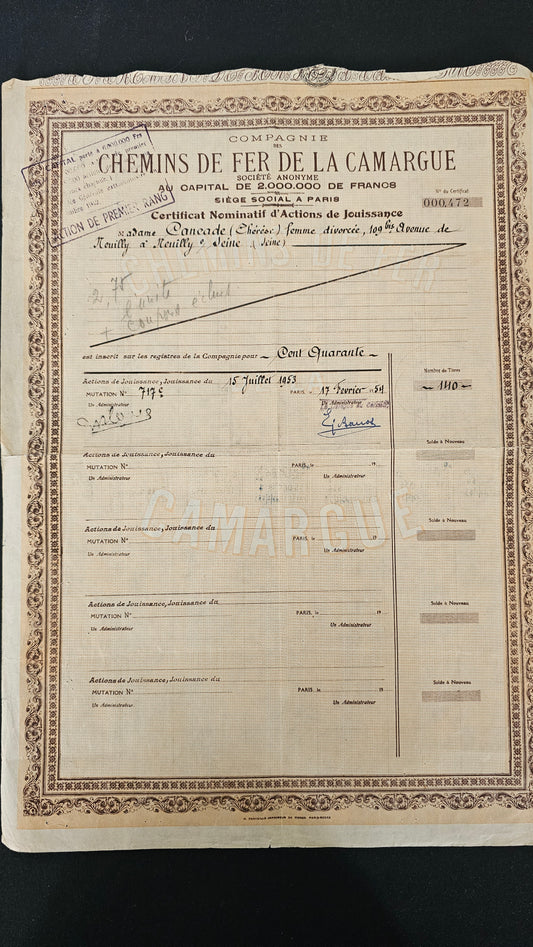 COMPAGNIE
DES
CHEMINS DE FER DE LA CAMARGUE
SOCIÉTÉ ANONYME
AU CAPITAL DE 2.000.000 DE FRANCS
SIÈGE SOCIAL A PARIS
Certificat Nominatif d'Actions de Jouissance
N° du Certificat
000,472
CAPITAL porté à 6.000.000 Frs
ACTION DE PREMIER RANG
Madame Dancade (Thérèse) femme divorcée, 109 bis Avenue de
Neuilly à Neuilly s/ Seine (Seine)
CHEMINS DE FER
2,75
l'unité
+ Coupons
est inscrit sur les registres de la Compagnie pour - Cent Quarante -
Nombre de Titres
- 140 -
Actions de Jouissance, Jouissance du 15 Juillet 1953
MUTATION N° 717
PARIS, le 17 Fevrier 1954
Un Administrateur
Un Administrateur
Solde à Nouveau
Actions de Jouissance, Jouissance du
MUTATION N°
PARIS, le 19
Un Administrateur
Un Administrateur
CAMARGUE
Solde à Nouveau
Actions de Jouissance, Jouissance du
MUTATION N°
PARIS, le 19
Un Administrateur
Un Administrateur
Solde à Nouveau
Actions de Jouissance, Jouissance du
MUTATION N°
PARIS, le 19
Un Administrateur
Un Administrateur
Solde à Nouveau
Actions de Jouissance, Jouissance du
MUTATION N°
PARIS, le 19
Un Administrateur
Un Administrateur